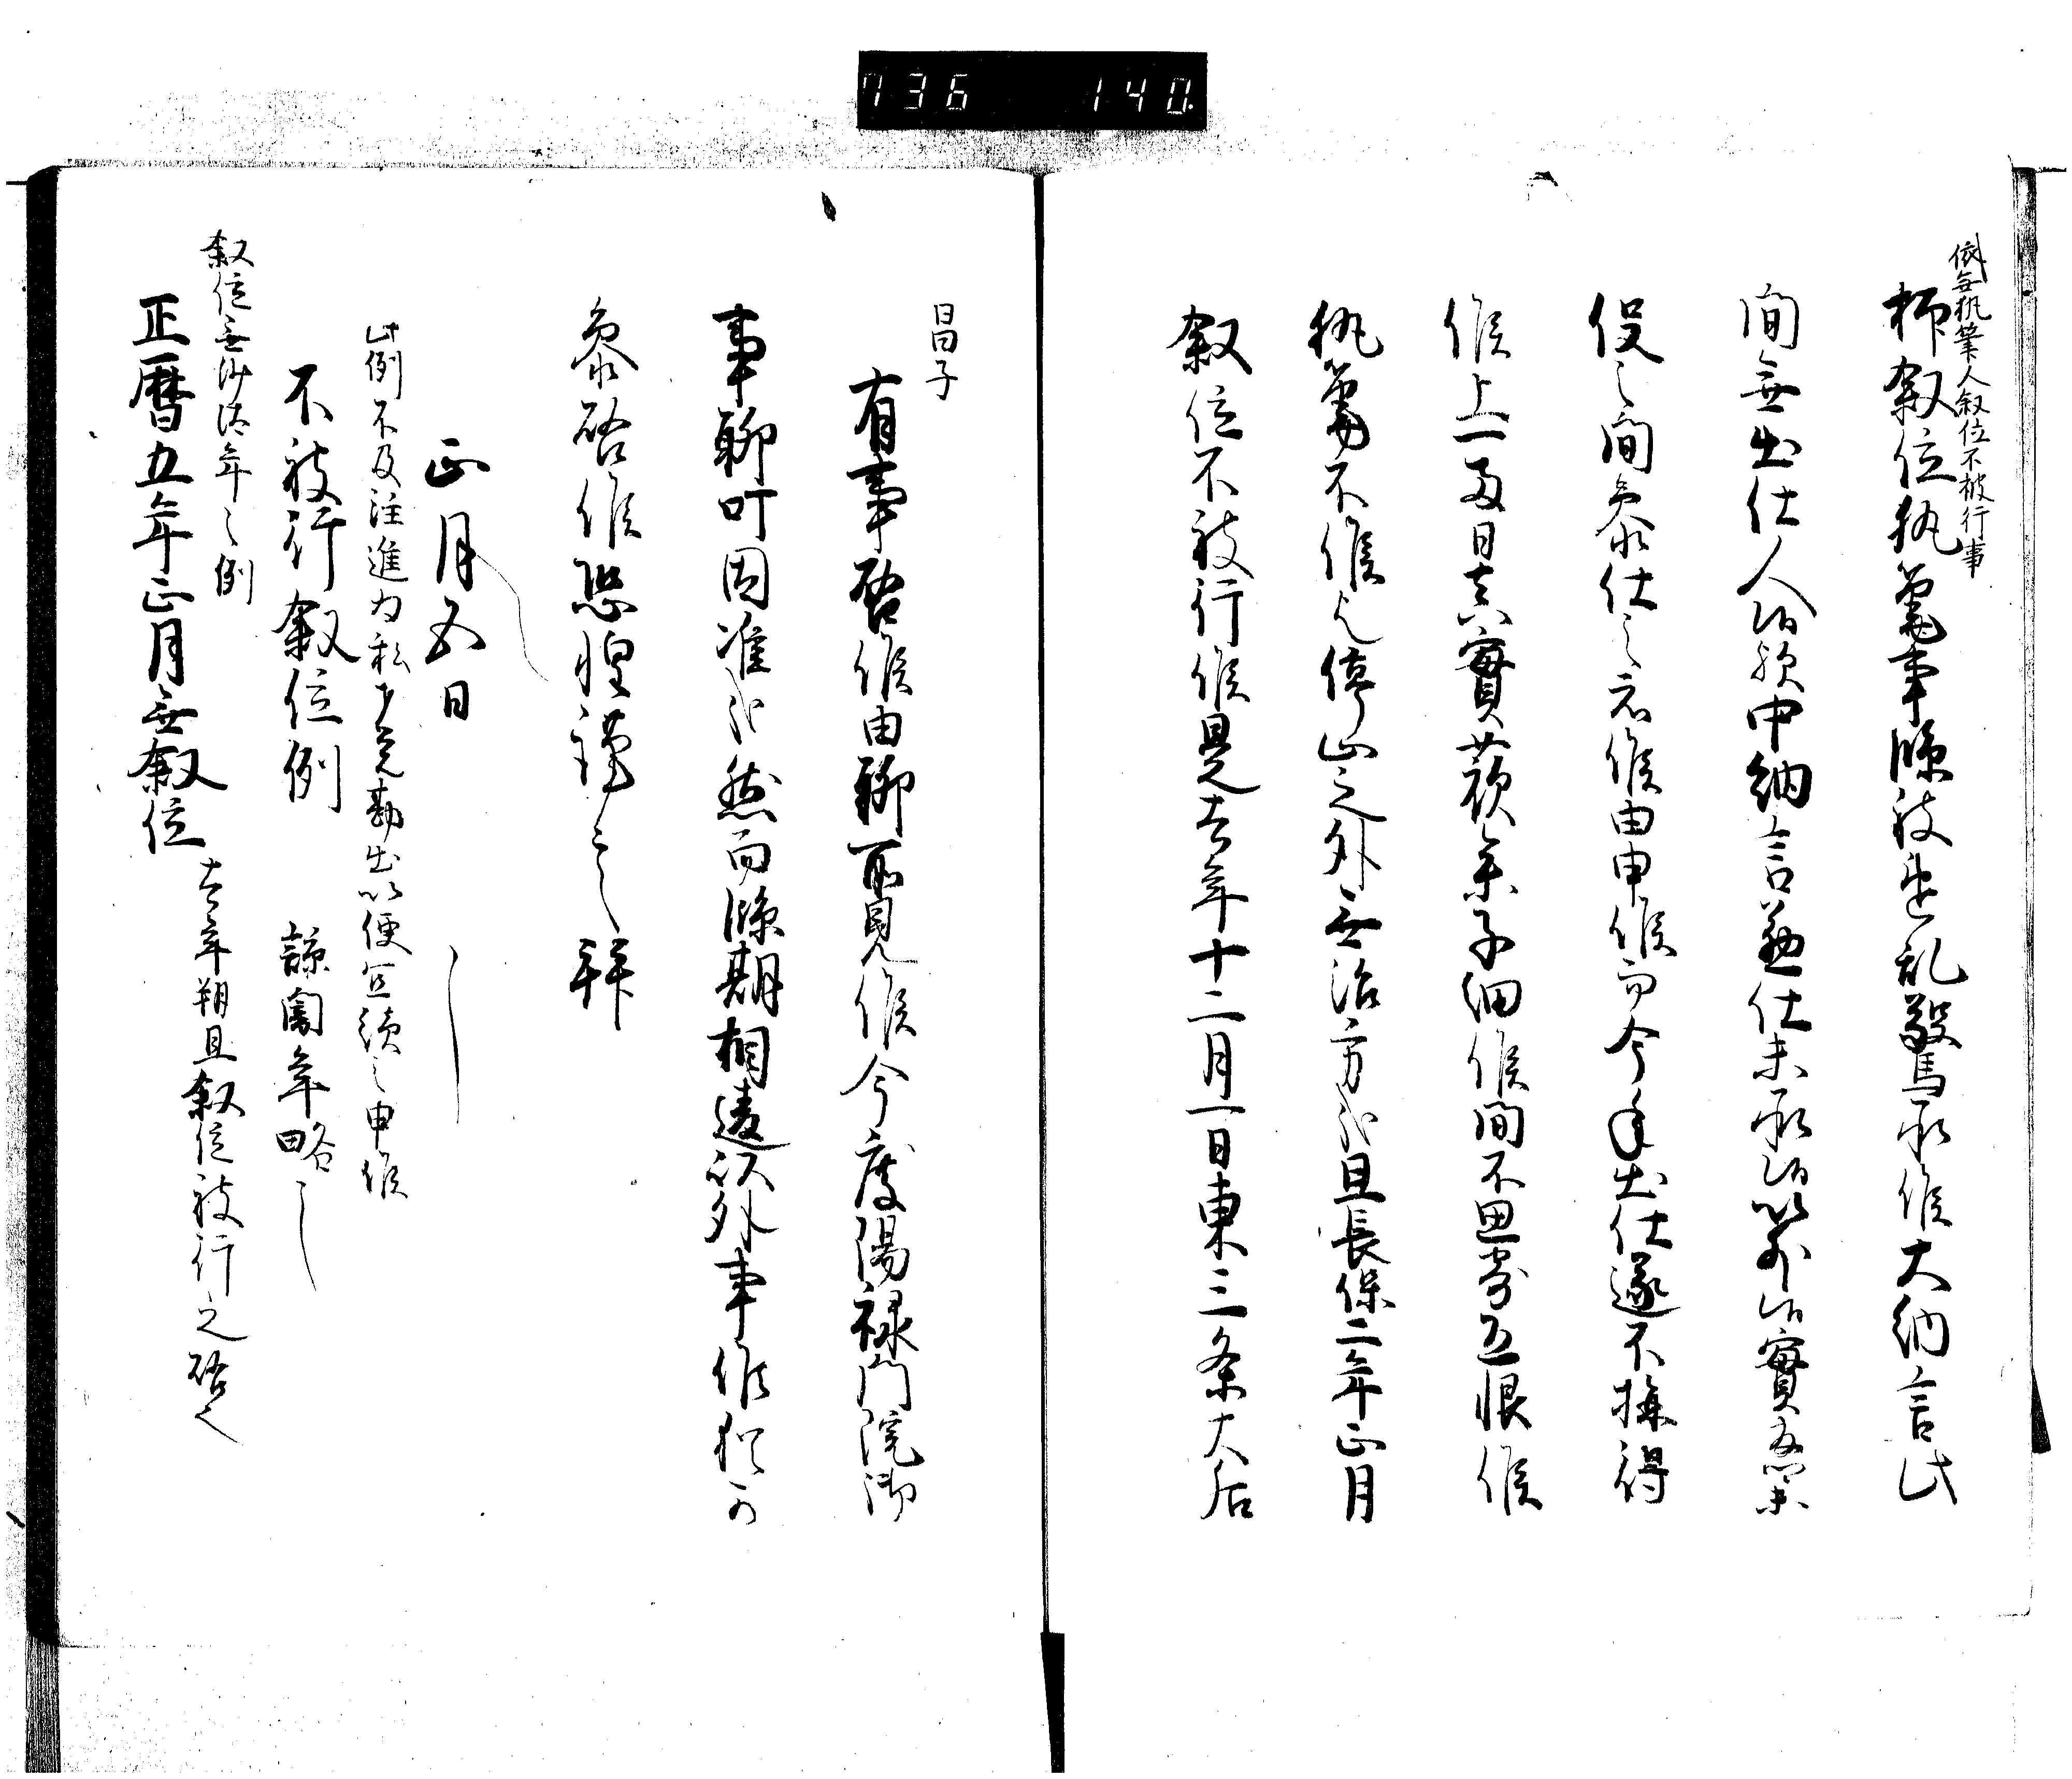 736 140
依無執筆人叙位不被行事
抑叙位執筆事勝被迷乱驚承候大納言此
間無出仕人候欤中納言兼仕未承候以外候實為案
役之間参仕之志候由申候而今年出仕遂不構得
候上一両日真實蒙子細候間不思寄互恨候
執筆不候者停止之外無治方候且長保二年正月
叙位不被行候是去年十二月一日東三条大后
昌子
有事啓候由聊所見候今度陽禄門院御
事聊叶因准候然而勝期相違以外事候猶可
参啓候恐惶謹言拜
正月五日
此例不及注進為私才覚勘出以便宜續之申候
不被行叙位例 諒闇年略之
叙位無沙汰年之例
正暦五年正月無叙位 去年朔旦叙位被行之啓之